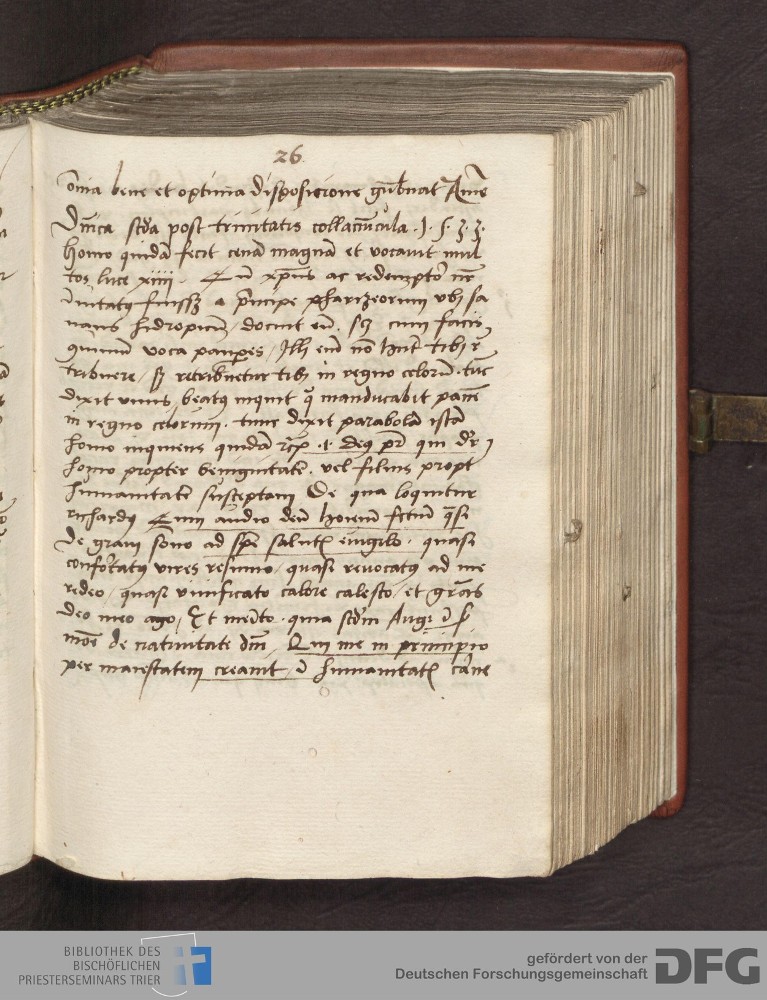 26.
om̄ia bene et optima disposicione gub̄nat Amē
Dn̄ica scd̄a post trinitatis collaciūcula · 1 · 5 · 3 · 3 ·
homo quidā fecit cenā magnā et vocavit mul
tos luce xiiii · Cū xp̄us ac redemptor nr̄
invitatꝯ fuissꝫ a principe pharizeorum vbi sa
navit hidropicū / docuit eū · sꝫ cum facis
ꝯuivium voca paup̄es / Illi eni nō hn̄t tibi r̄
tribuere / sꝫ retribuetur tibi in regno celorū · tūc
dixit unus / beatꝯ inquit q̄ manducabit panē
in regno celorum · tunc dixit parabolā istā
homo inquiens quidā · i · deꝯ pr̄ qui dr̄
homo propter benignitatē · vel filius propt
humanitatē susceptam De qua loquitur
richardꝯ Cum audio deū hoīem fctūm q̄si
de gravi sōno ad spē salutis evigilo · quasi
confortatꝯ vires resumo / quasi revocatꝯ ad me
redeo / quasi vivificato calore calesco / et gr̄as
deo meo ago / Et merito · quia scd̄m Augꝫ ī s̄
mōe de nativitate dn̄i / Qui me in principio
per maiestatem creavit / ī humanitatis carne
BIBLIOTHEK DES
BISCHÖFLICHEN
PRIESTERSEMINARS TRIER
gefördert von der
Deutschen Forschungsgemeinschaft DFG